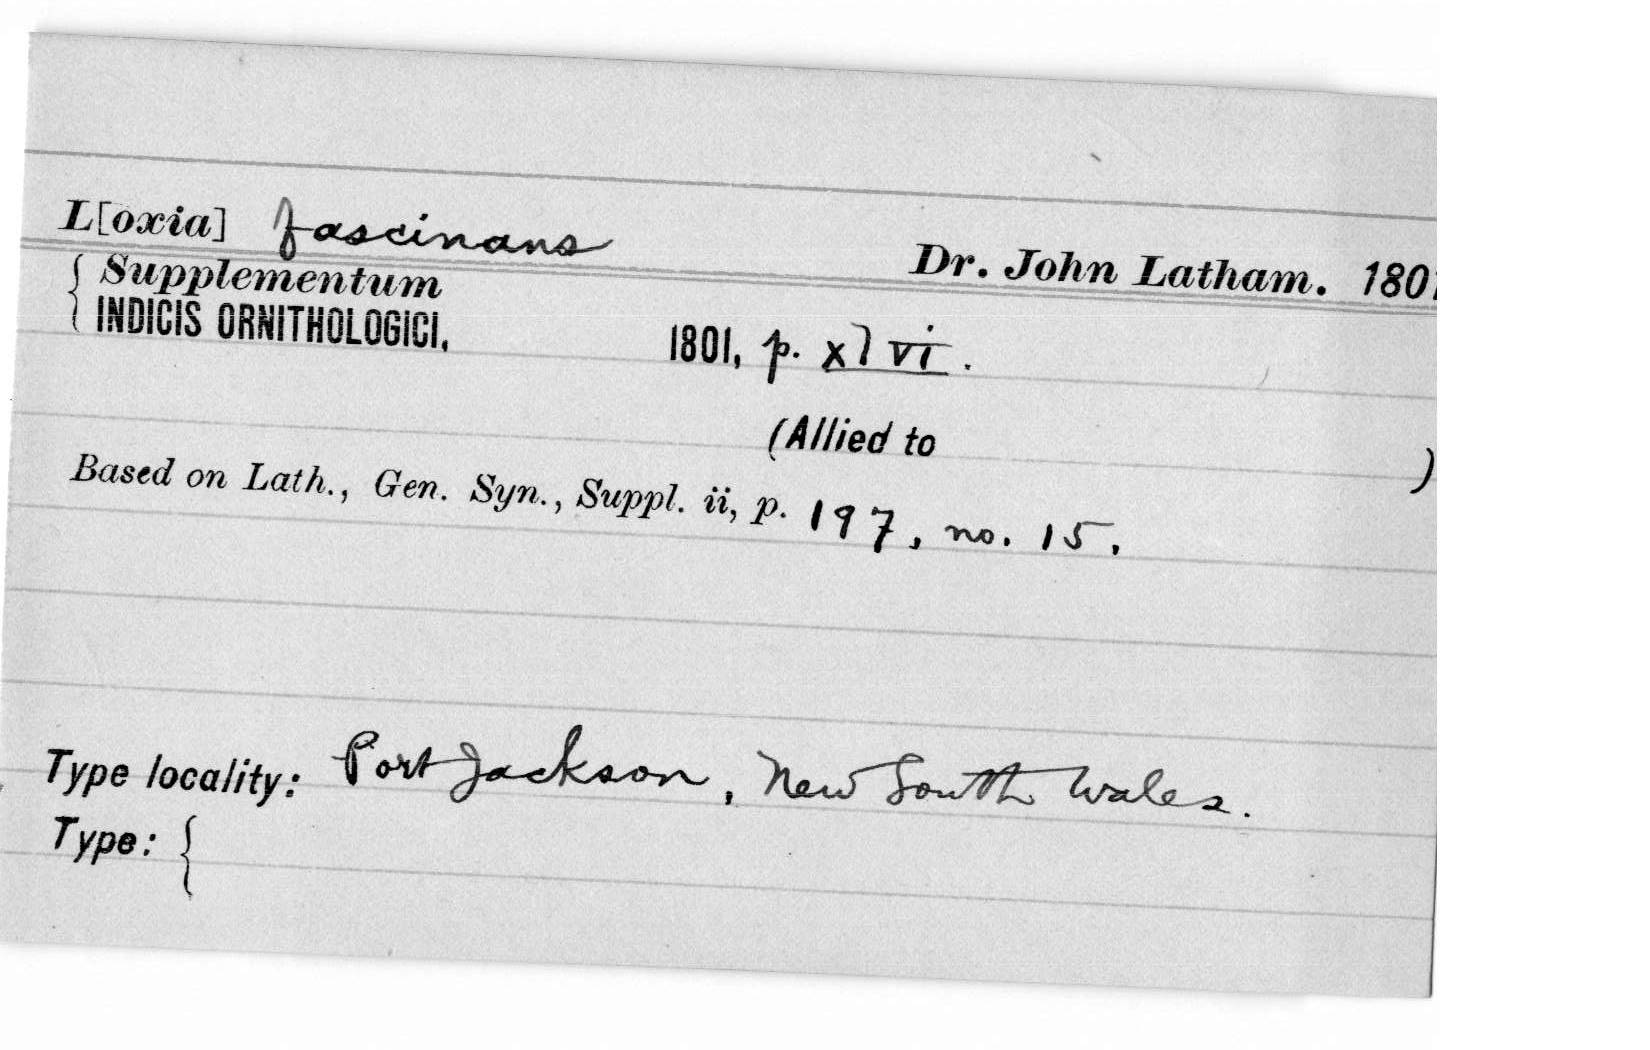 L[oxia] fascinans
Dr. John Latham. 1801
{ Supplementum
INDICIS ORNITHOLOGICI,
1801, p. xlvi.
(Allied to )
Based on Lath., Gen. Syn., Suppl. ii, p. 197, no. 15.
Type locality: Port Jackson, New South Wales.
Type: {